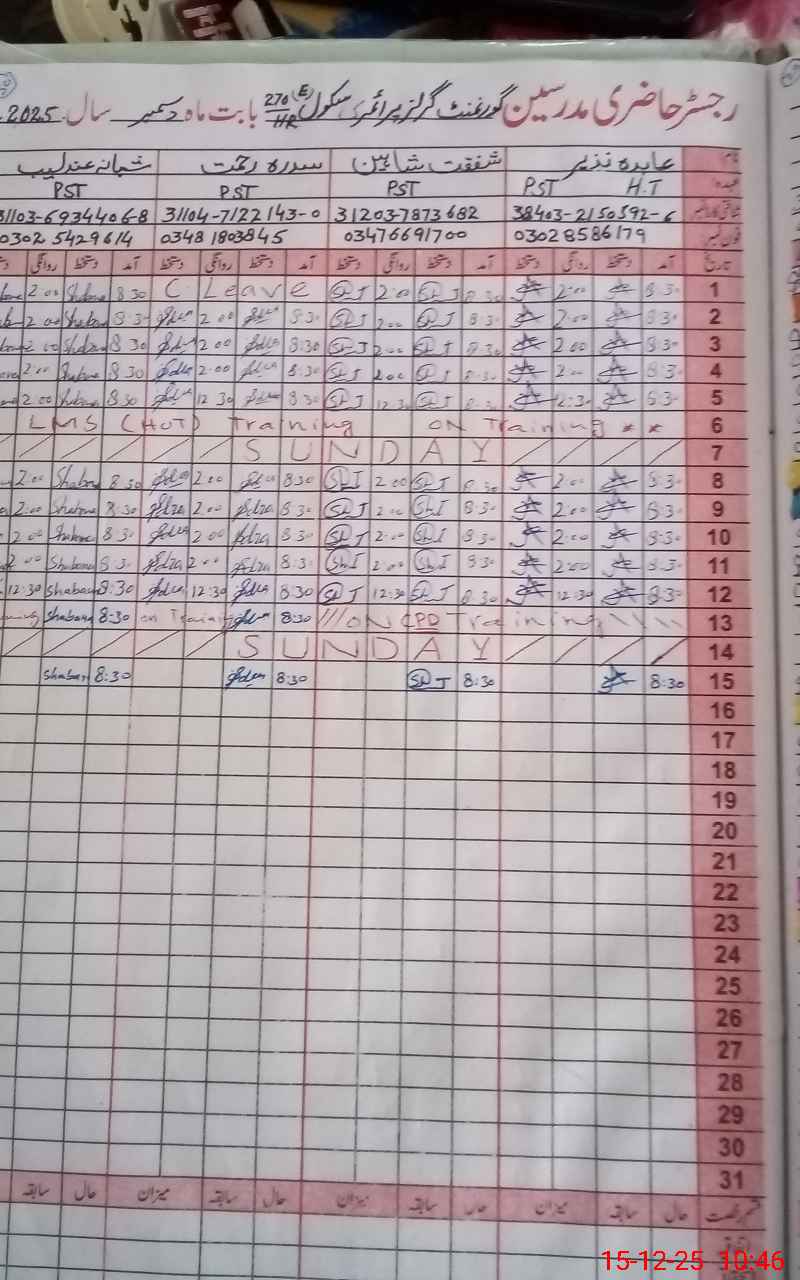 رجسٹر حاضری مدرسین گورنمنٹ گرلز پرائمری سکول 270/HR (E) بابت ماہ دسمبر سال 2025
نام عابدہ نذیر شفقت شاہین سدرہ رحمت شبانہ عندلیب
عہدہ H.T PST PST PST PST
شناختی کارڈ نمبر 38403-2150592-6 31203-7873682 31104-7122143-0 31103-6934406-8
فون نمبر 03028586179 03476691700 0348 1803845 0302 5429614
تاریخ آمد دستخط روانگی دستخط آمد دستخط روانگی دستخط آمد دستخط روانگی دستخط آمد دستخط روانگی
1 8:30 2:00 8:30 ShJ 2:00 ShJ C Leave 8:30 Shabana 2:00
2 8:30 2:00 8:30 ShJ 2:00 ShJ 8:30 2:00 8:30 Shabana 2:00
3 8:30 2:00 8:30 ShJ 2:00 ShJ 8:30 2:00 8:30 Shabana 2:00
4 8:30 2:00 8:30 ShJ 2:00 ShJ 8:30 2:00 8:30 Shabana 2:00
5 8:30 12:30 8:30 ShJ 12:30 ShJ 8:30 12:30 8:30 Shabana 2:00
6 LMS (HOT) Training ON Training
7 SUNDAY
8 8:30 2:00 8:30 ShJ 2:00 ShJ 8:30 2:00 8:30 Shabana 2:00
9 8:30 2:00 8:30 ShJ 2:00 ShJ 8:30 2:00 8:30 Shabana 2:00
10 8:30 2:00 8:30 ShJ 2:00 ShJ 8:30 2:00 8:30 Shabana 2:00
11 8:30 2:00 8:30 ShJ 2:00 ShJ 8:30 2:00 8:30 Shabana 2:00
12 8:30 12:30 8:30 ShJ 12:30 ShJ 8:30 12:30 8:30 Shabana 12:30
13 ON CPD Training 8:30 on Training 8:30 Shabana
14 SUNDAY
15 8:30 8:30 ShJ 8:30 8:30 Shabana
16
17
18
19
20
21
22
23
24
25
26
27
28
29
30
31
قسم رخصت حال سابقہ میزان حال سابقہ میزان حال سابقہ میزان حال سابقہ
اتفاقیہ
15-12-25 10:46